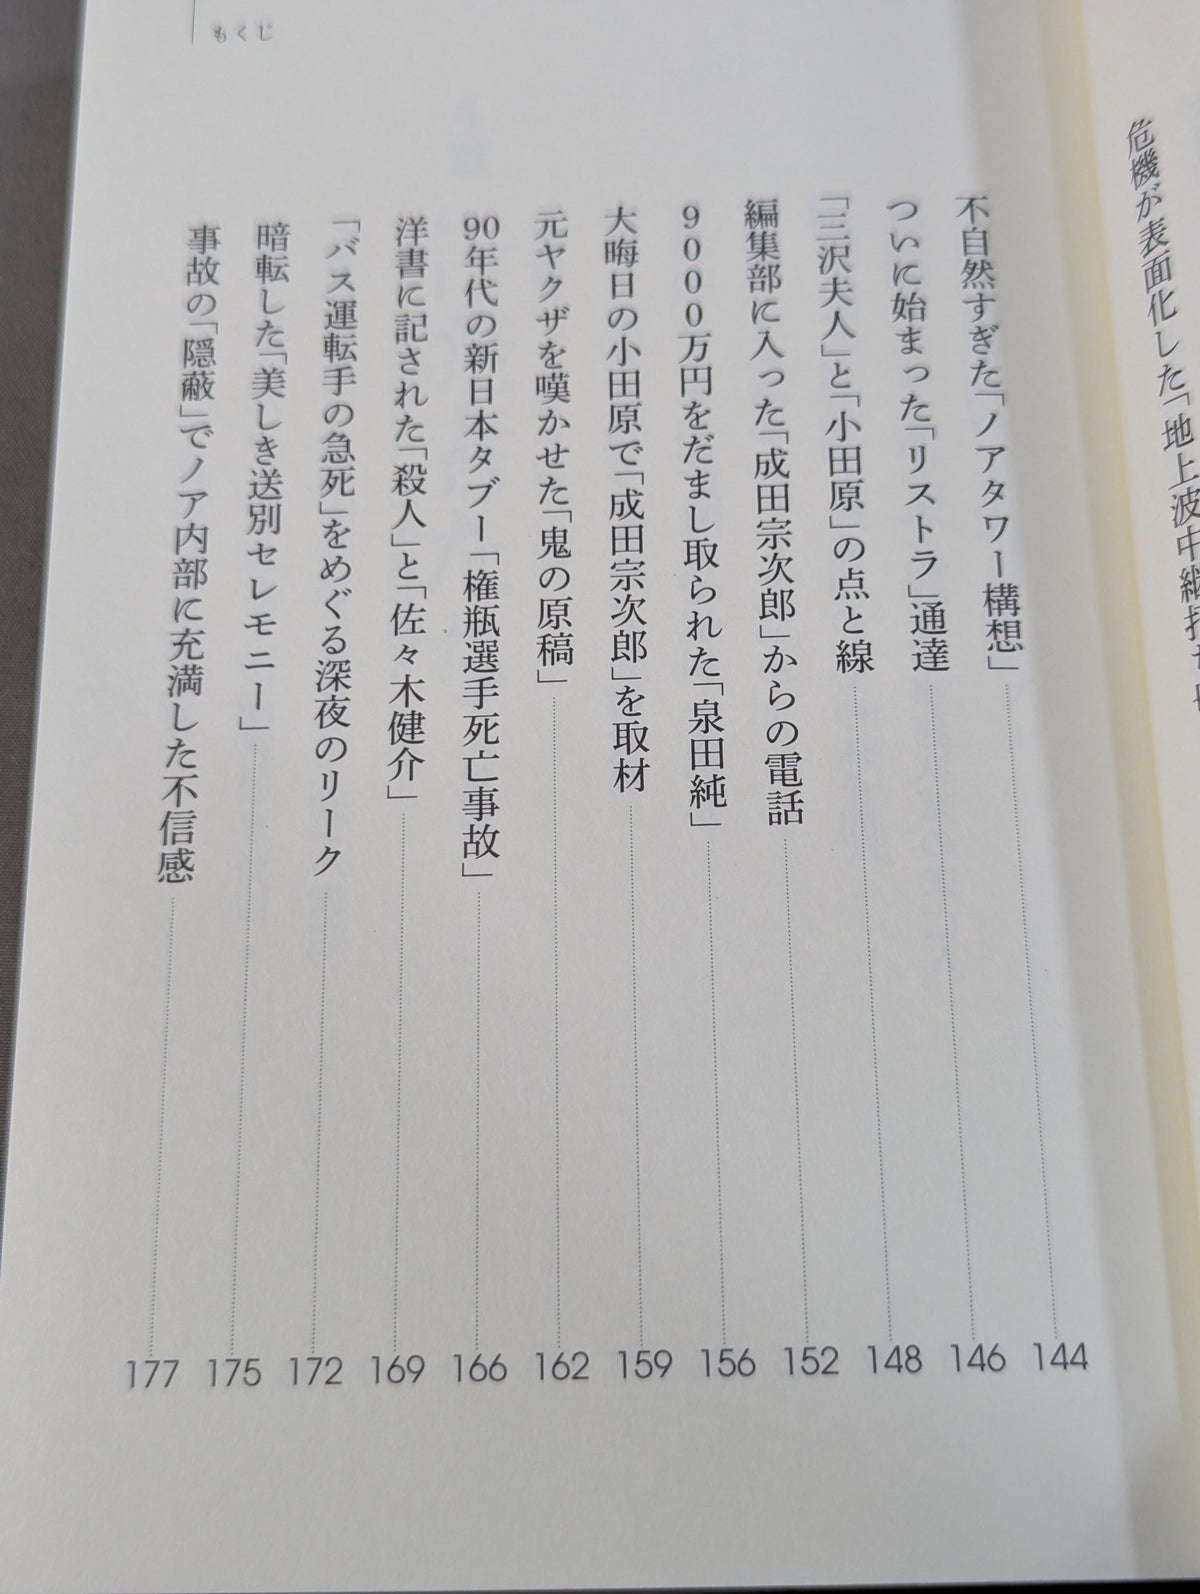 もくじ
危機が表面化した「地上波中継打ち
不自然すぎた「ノアタワー構想」 144
ついに始まった「リストラ」通達 146
「三沢夫人」と「小田原」の点と線 148
編集部に入った「成田宗次郎」からの電話 152
9000万円をだまし取られた「泉田純」 156
大晦日の小田原で「成田宗次郎」を取材 159
元ヤクザを嘆かせた「鬼の原稿」 162
90年代の新日本タブー「権瓶選手死亡事故」 166
洋書に記された「殺人」と「佐々木健介」 169
「バス運転手の急死」をめぐる深夜のリーク 172
暗転した「美しき送別セレモニー」 175
事故の「隠蔽」でノア内部に充満した不信感 177